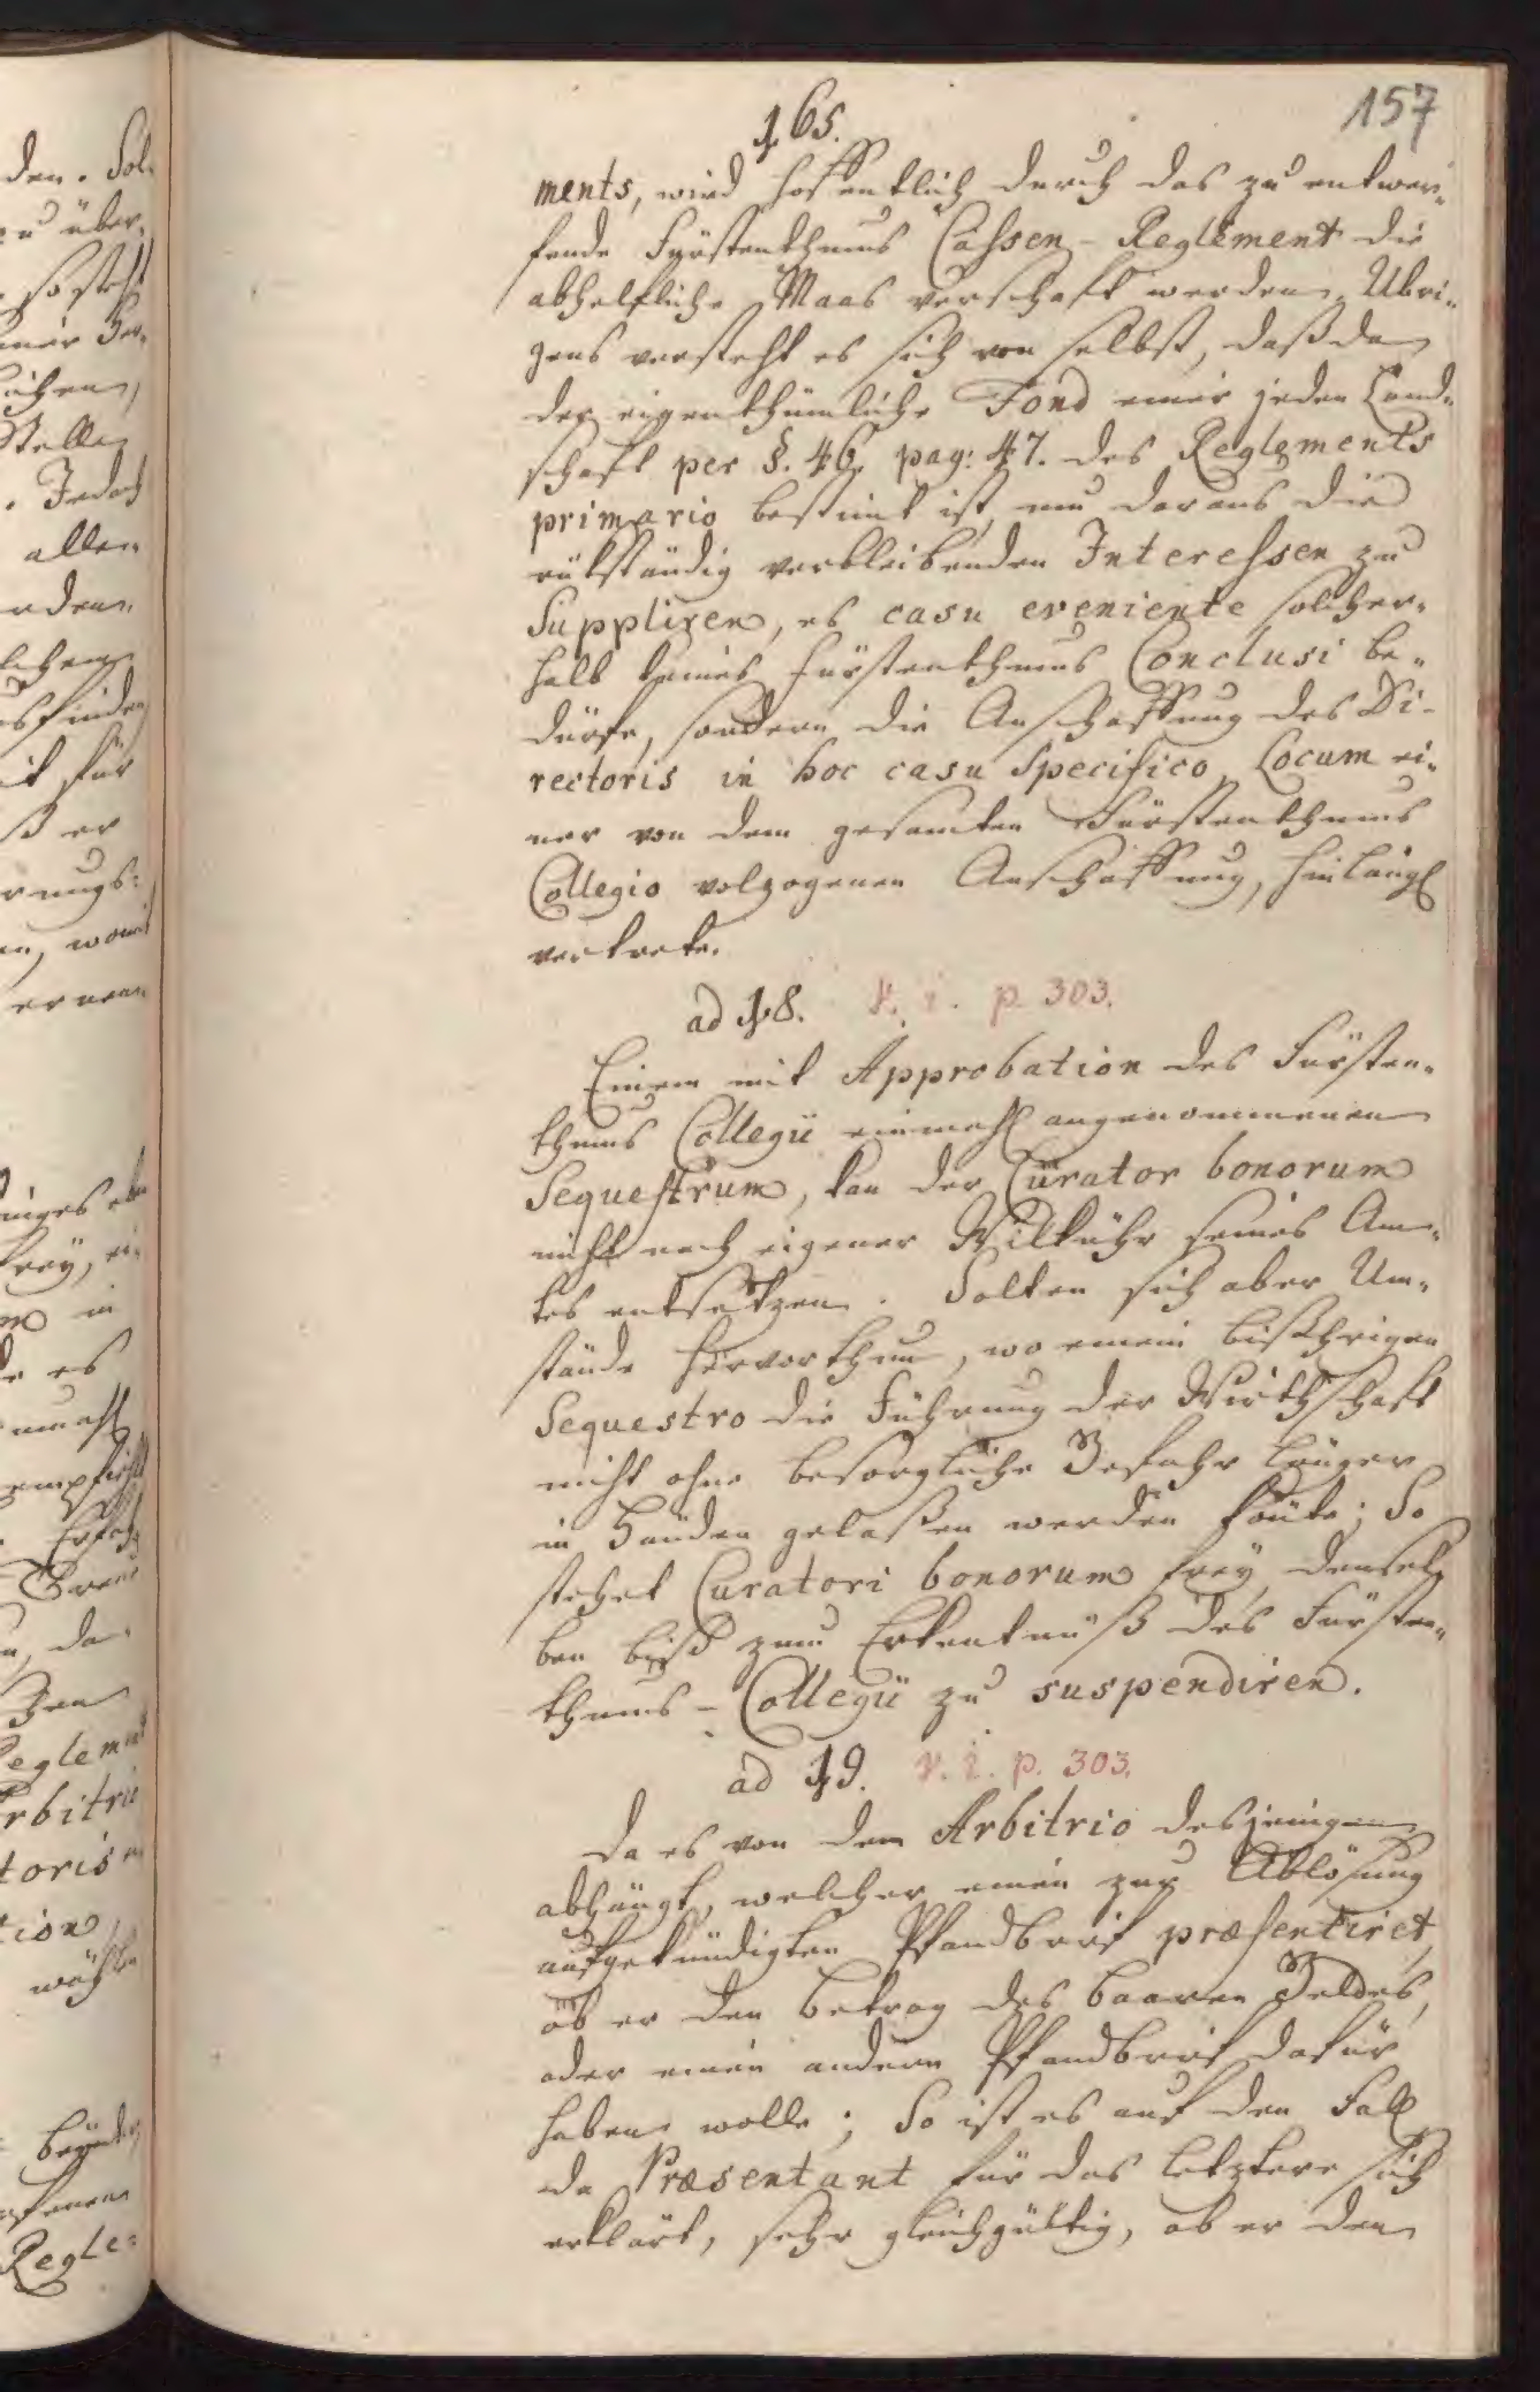 165.
157
ments, wird hoffentlich durch das zu entwer„
fende Fürstenthums Cassen-Reglement die
abhelfliche Maas verschaft werden. Übri„
gens versteht es sich von selbst, daß da
der eigenthümliche Fond einer jeden Land„
schaft per §. 46. pag: 47. des Reglements
primario bestimt ist, um daraus die
rükständig verbleibenden Interessen zu
Suppliren, es casu eveniente solcher„
halb keines Fürstenthums Conclusi be„
dürfe, sondern die Anschaffung des Di-
rectoris in hoc casu Specifico Locum ei„
ner von dem gesamten Fürstenthums
Collegio volzogenen Anschaffung, hinlängl
vertrete.
ad 18. v. i. p. 303.
Einem mit Approbation des Fürsten„
thums Collegii einmahl angenommenen
Sequestrum, kan der Curator bonorum
nicht nach eigener Wilkühr seines Am„
tes entsetzen. Solten sich aber Um„
stände hervorthun, wo einem bißherigen
Sequestro die Führung der Wirthschaft
nicht ohne besorgliche Gefahr länger
in Händen gelaßen werden könte; So
stehet Curatori bonorum frey, densel„
ben biß zum Erkentnüß des Fürsten„
thums-Collegii zu suspendiren.
ad 19. v. i. p. 303.
Da es von dem Arbitrio desjenigen
abhängt, welcher einen zur Ablösung
aufgekündigten Pfandbrief præsentiret,
ob er den Betrag des baaren Geldes,
oder einen andern Pfandbrief dafür
haben wolle; So ist es auf den Fall
da Præsentant für das letztere sich
erklärt, sehr gleichgültig, ob er den